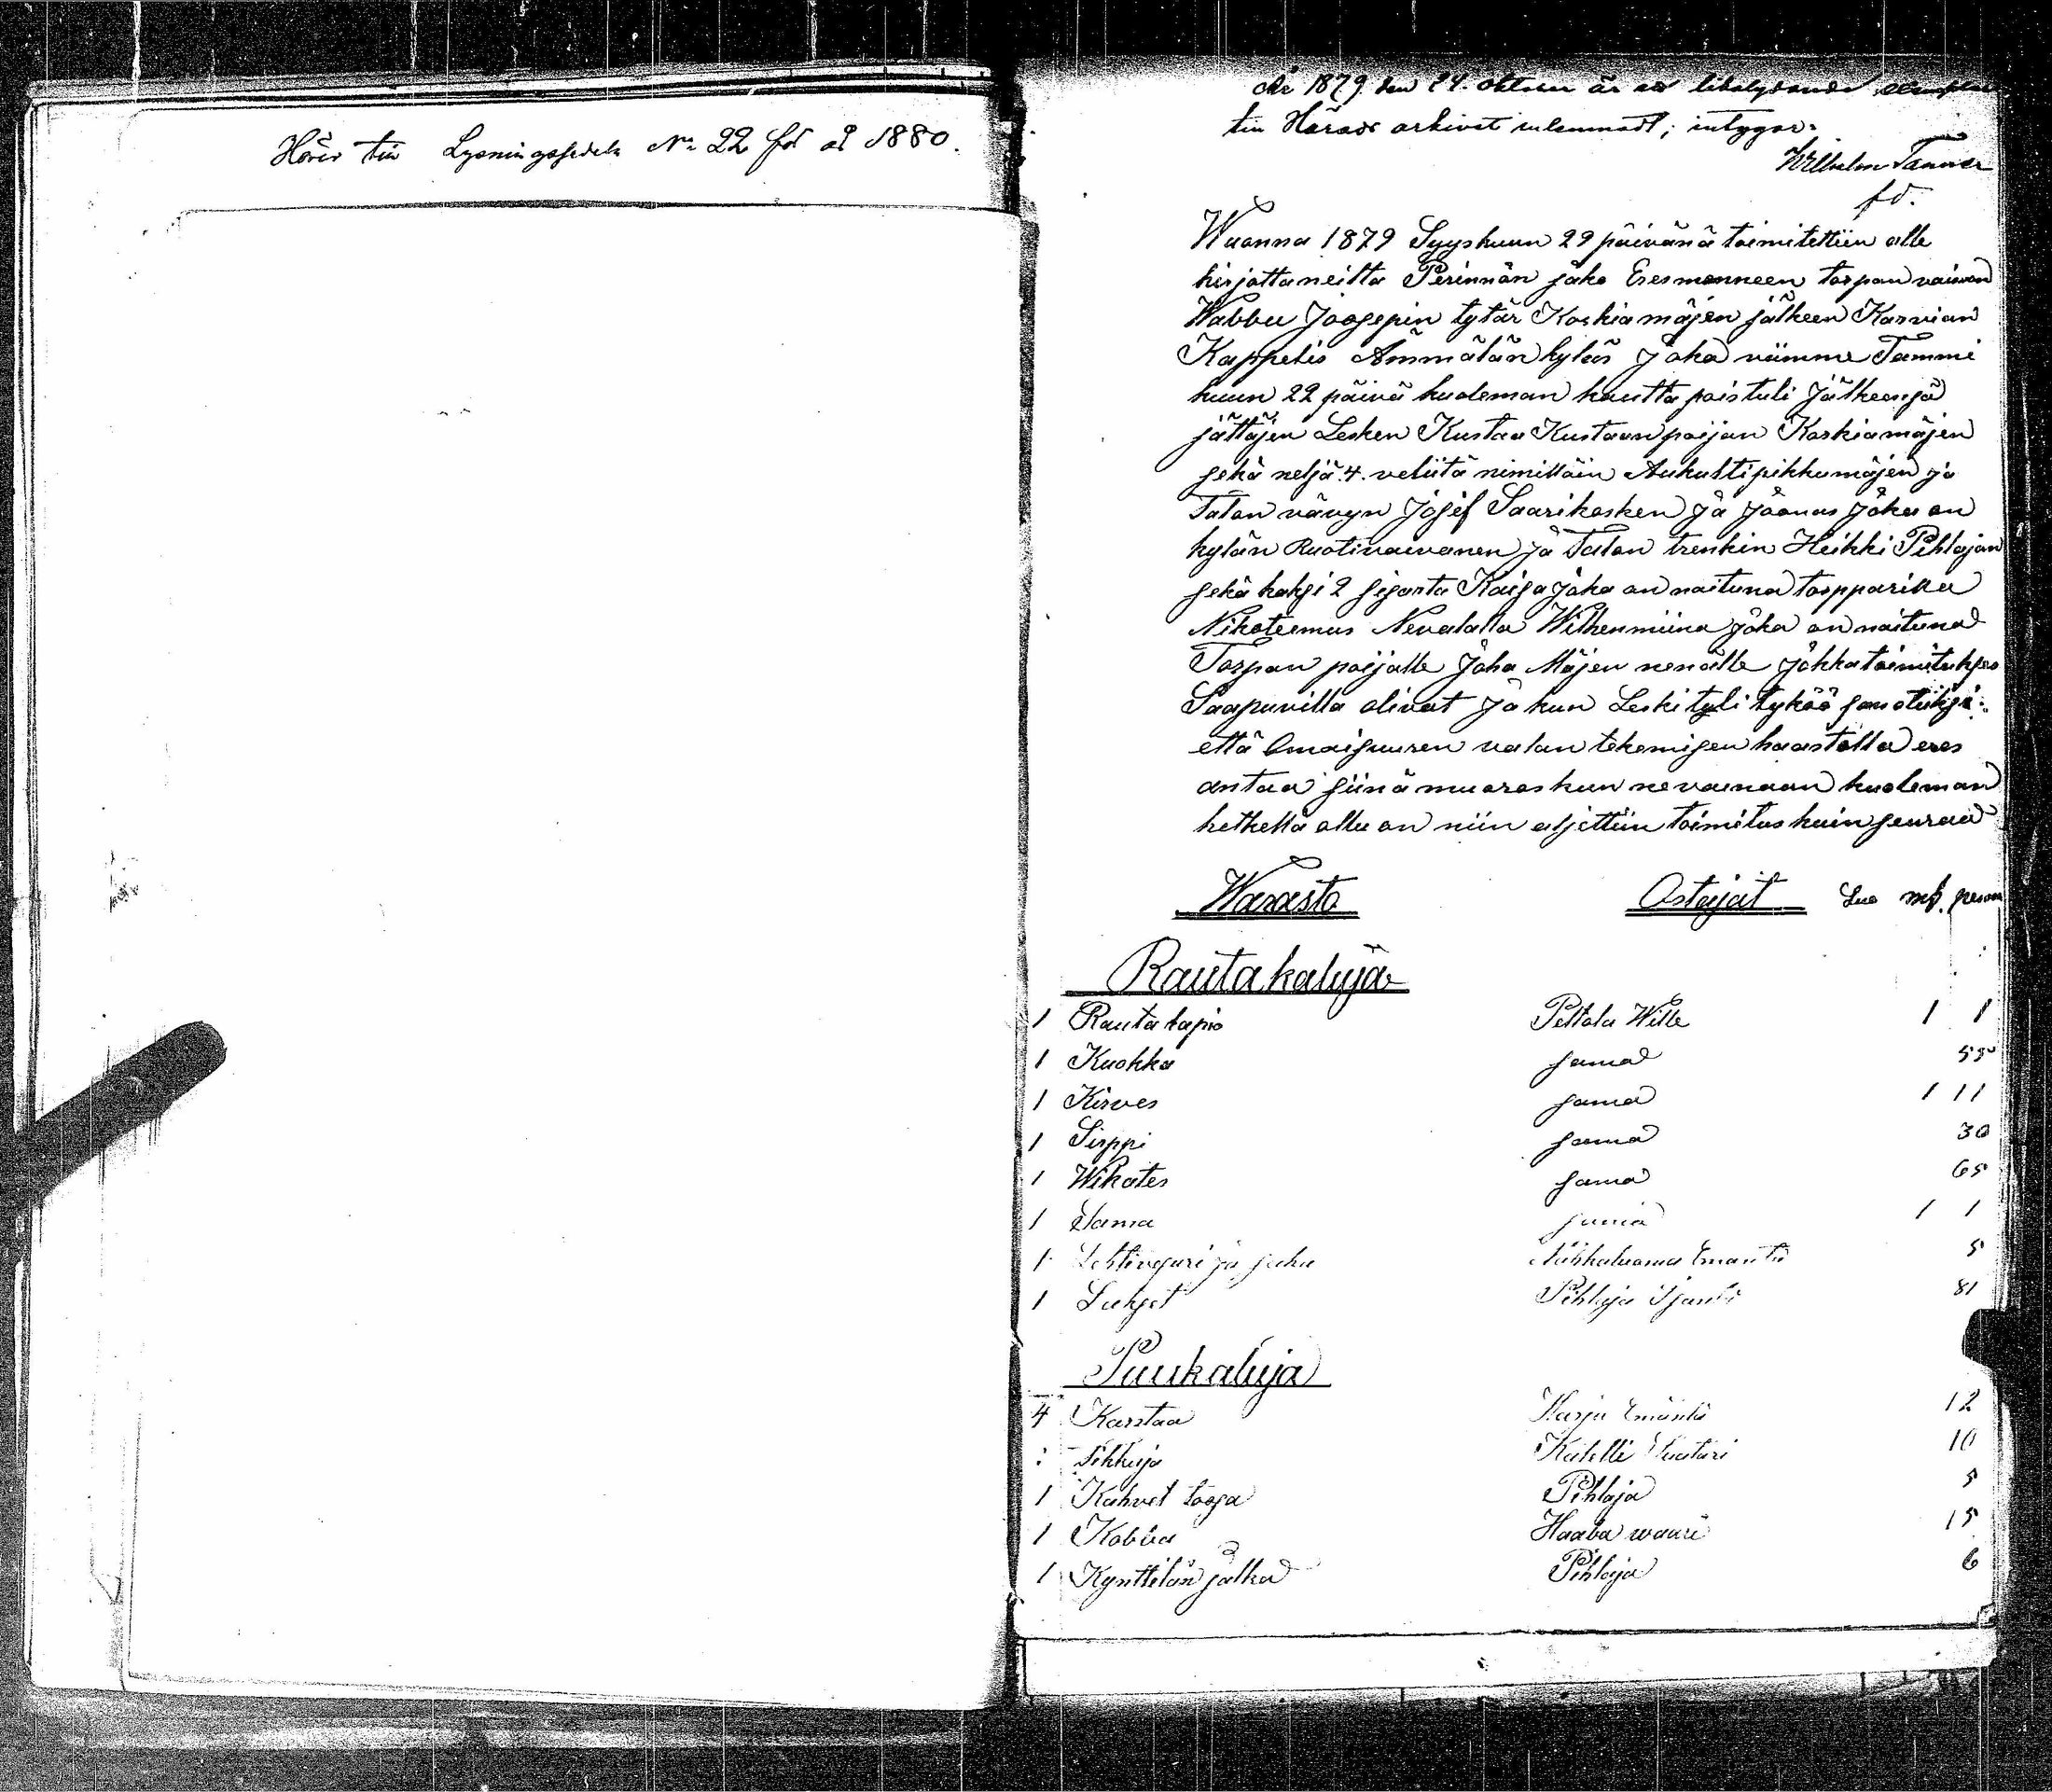 Hörer till Lysningssedeln No 22 för år 1880.
År 1879 den 24. oktober är ett likalydande exemplar
till Härads arkivet inlemnadt; intygar:
Wilhelm Tanner
fd.
Wuonna 1879 Syyskuun 29 päivänä toimitettiin alle
kirjottaneilta Perinnön jako Eresmenneen torpan vaimon
Wabbu Joosepin tytär Koskiamäjen jälkeen Karvian
Kappelis Ämmälän kyläs Joka viimme Tammi
kuun 22 päivä kuoleman kautta pois tuli Jälkeensä
jättäjen Lesken Kustaa Kustaan poijan Koskiamäjen
sekä neljä 4. veliitä nimittäin Aukusti pikkumäjen ja
Talon vävyn Josef Saarikosken Ja Joonas Joka on
kylän Ruotivaivanen Ja Talon trenkin Heikki Pihlajan
sekä kaksi 2 sisarta Kaisa Joka on naituna torpparilla
Nikoteemus Nevalalla Wilhenmiina Joka on naituna
Torpan poijalle Joha Mäjen nenälle Jokka toimitukses
Saapuvilla olivat Ja kun Leski tuli tyköö sanotuksi:
että Omaisuuren valan tekemisen haastolla eres
antaa siinä muoros kun ne vainaan kuoleman
hetkellä ollu on niin aljettiin toimitus kuin seuraa
Warasto Ostajat Luo mk. penni
Rautakaluja
1 Rauta lapio Peltola Wille 1 1
1 Kuokka sama 55
1 Kirves sama 1 11
1 Sirppi sama 30
1 Wikates sama 65
1 Sama sama 1 1
1 Lehtivesuri ja Emäntä 5
1 Pihlaja Isäntä 81
Puukaluja
4 Karstaa Harju Emäntä 12
Pihlaja 5
1 Haaba waari 15
1 Kynttilän jalka Pihlaja 6